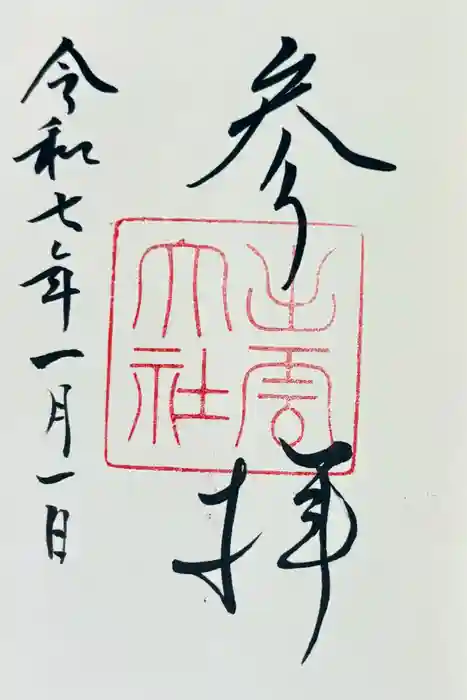 参拝
出雲
大社
令和七年一月一日